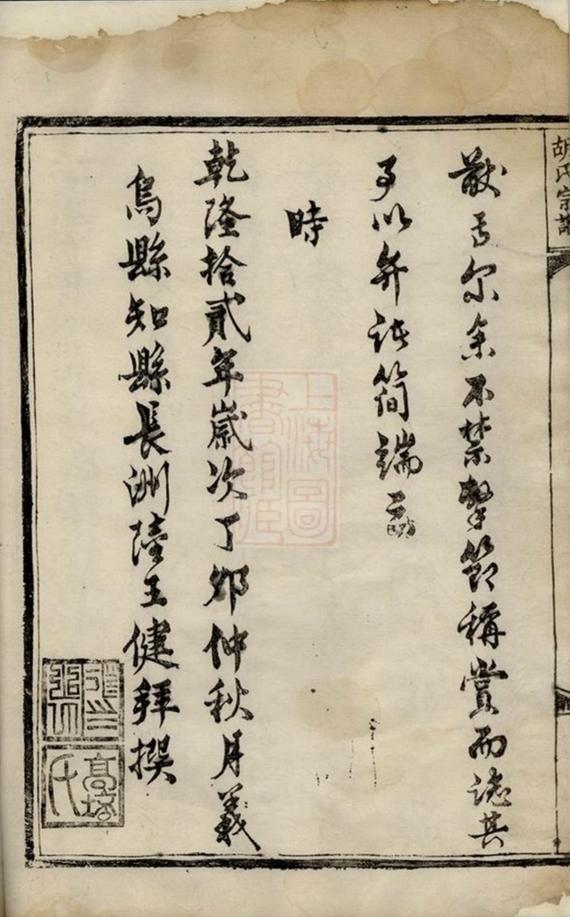 胡氏宗譜
猷者尔余不禁擊節稱賞而誌其
事以弁諸簡端云
時
乾隆拾貳年歲次丁卯仲秋月義
烏縣知縣長洲陸王健拜撰
上海圖書館藏